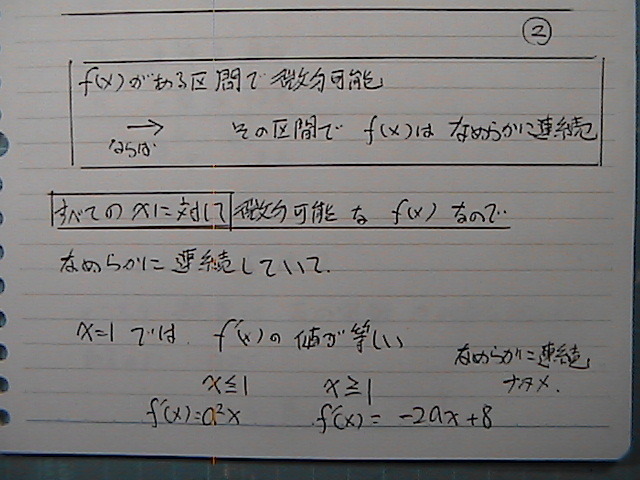 ②
f(x)がある区間で微分可能
→ ならば その区間で f(x)は なめらかに連続
すべての xに対して 微分可能 な f(x) なので
なめらかに 連続していて、
x=1 では、f'(x)の 値が 等しい
なめらかに連続
x≦1 x≧1
f'(x)=a²x f'(x)= -2ax+8